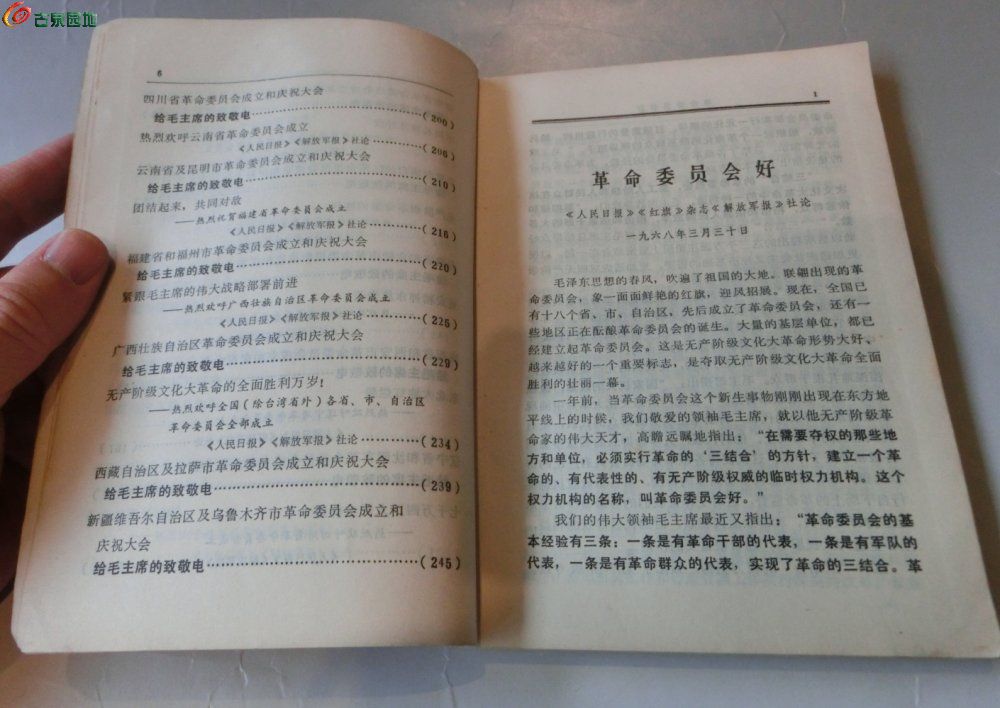 古泉园地
6
四川省革命委员会成立和庆祝大会
给毛主席的致敬电……………………………(200)
热烈欢呼云南省革命委员会成立
《人民日报》《解放军报》社论……………(206)
云南省及昆明市革命委员会成立和庆祝大会
给毛主席的致敬电……………………………(210)
团结起来，共同对敌
——热烈祝贺福建省革命委员会成立
《人民日报》《解放军报》社论……………(216)
福建省和福州市革命委员会成立和庆祝大会
给毛主席的致敬电……………………………(220)
紧跟毛主席的伟大战略部署前进
——热烈欢呼广西壮族自治区革命委员会成立
《人民日报》《解放军报》社论……………(225)
广西壮族自治区革命委员会成立和庆祝大会
给毛主席的致敬电……………………………(229)
无产阶级文化大革命的全面胜利万岁！
——热烈欢呼全国（除台湾省外）各省、市、自治区
革命委员会全部成立
《人民日报》《解放军报》社论……………(234)
西藏自治区及拉萨市革命委员会成立和庆祝大会
给毛主席的致敬电……………………………(239)
新疆维吾尔自治区及乌鲁木齐市革命委员会成立和
庆祝大会
给毛主席的致敬电……………………………(245)
1
革命委员会好
《人民日报》《红旗》杂志《解放军报》社论
一九六八年三月三十日
毛泽东思想的春风，吹遍了祖国的大地。联翩出现的革
命委员会，象一面面鲜艳的红旗，迎风招展。现在，全国已
有十八个省、市、自治区，先后成立了革命委员会，还有一
些地区正在酝酿革命委员会的诞生。大量的基层单位，都已
经建立起革命委员会。这是无产阶级文化大革命形势大好、
越来越好的一个重要标志，是夺取无产阶级文化大革命全面
胜利的壮丽一幕。
一年前，当革命委员会这个新生事物刚刚出现在东方地
平线上的时候，我们敬爱的领袖毛主席，就以他无产阶级革
命家的伟大天才，高瞻远瞩地指出：“在需要夺权的那些地
方和单位，必须实行革命的‘三结合’的方针，建立一个革
命的、有代表性的、有无产阶级权威的临时权力机构。这个
权力机构的名称，叫革命委员会好。”
我们的伟大领袖毛主席最近又指出：“革命委员会的基
本经验有三条：一条是有革命干部的代表，一条是有军队的
代表，一条是有革命群众的代表，实现了革命的三结合。革